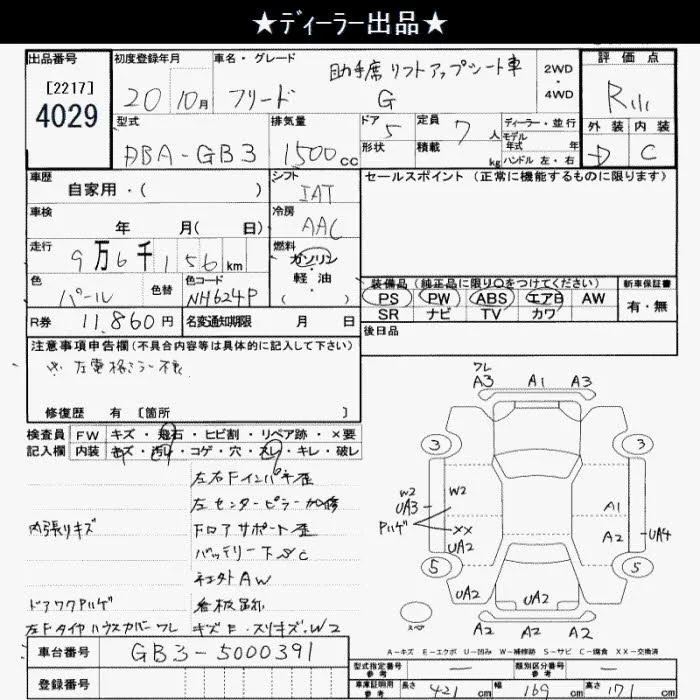 ★ﾃﾞｨｰﾗｰ出品★
出品番号
[2217]
4029
初度登録年月
20 10月
車名・グレード
助手席リフトアップシート車
フリード G
2WD
・
4WD
評価点
R
外装 内装
D C
型式
DBA-GB3
排気量
1500cc
ドア 5
形状
定員 7人
積載 kg
ディーラー・並行
モデル年式 年
ハンドル 左・右
車歴
自家用・( )
シフト
IAT
セールスポイント (正常に機能するものに限ります)
車検
年 月( 日)
冷房
AAC
走行
9万6千156km
燃料
ガソリン
・
軽油
( )
色
パール
色替
色コード
NH624P
装備品(純正品に限り○をつけてください)
PS PW ABS エアB AW
SR ナビ TV カワ
新車保証書
有・無
R券 11,860円
名変通知期限 月 日
後日品
注意事項申告欄(不具合内容等は具体的に記入して下さい)
※左電格ミラー不良
修復歴 有 [箇所 ]
検査員
記入欄
FW キズ・飛石・ヒビ割・リペア跡・×要
内装 キズ・汚レ・コゲ・穴・スレ・キレ・破レ
左右Fインパネ歪
左センターピラー加修
内張りキズ
フロアサポート歪
バッテリー下SC
社外AW
ドアワクPハゲ
左Fタイヤハウスカバーワレ
キズE・スリキズ・W2
ワレ
A3 A1 A3
3 3
W2
UA3
W2
Pハゲ
XX
UA2
A1
A2
UA4
5 5
UA2 UA2 UA2
スペア
A2 A2 A2
A－キズ E－エクボ U－凹み W－補修跡 S－サビ C－腐食 XX－交換済
車台番号 GB3-5000391
登録番号
型式指定番号 参考 －
類別区分番号 参考 －
車庫証明用 参考 長さ 421cm 幅 169cm 高さ 171cm